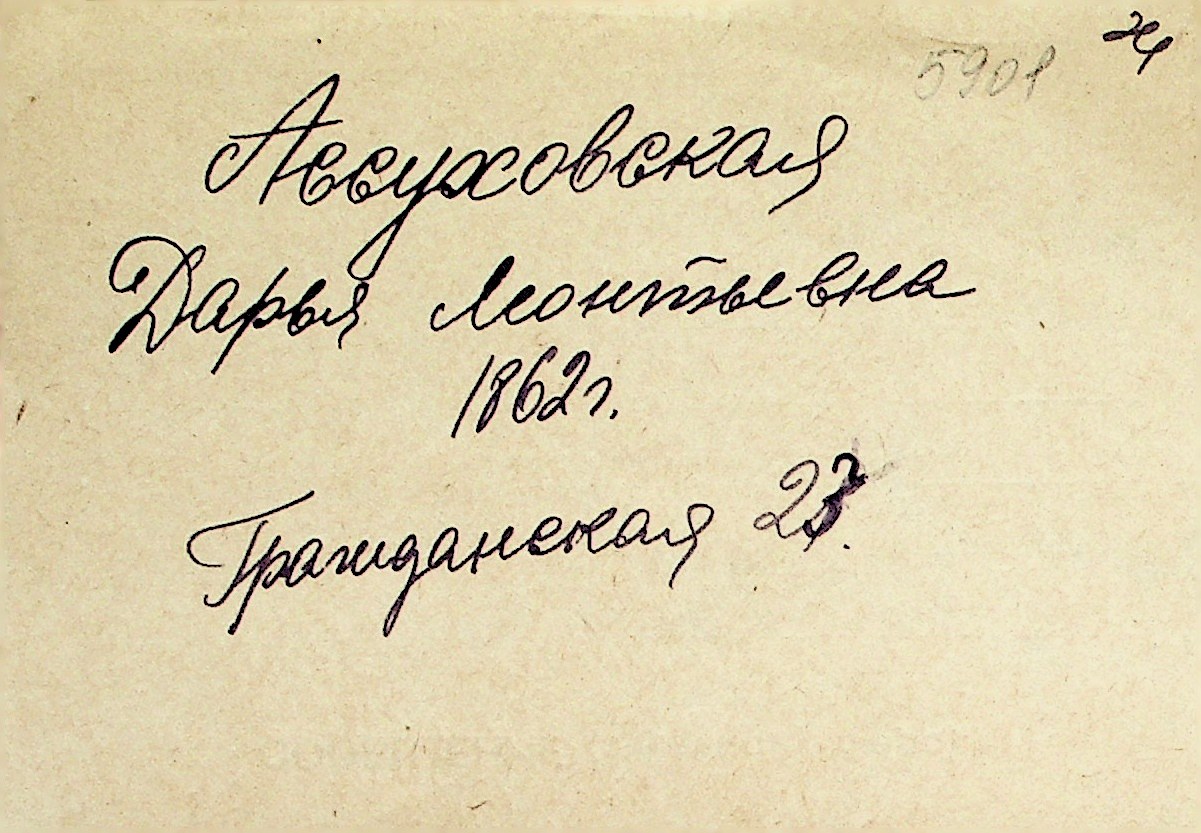 5901 ж
Ассуховская
Дарья Леонтьевна
1862г.
Гражданская 27.